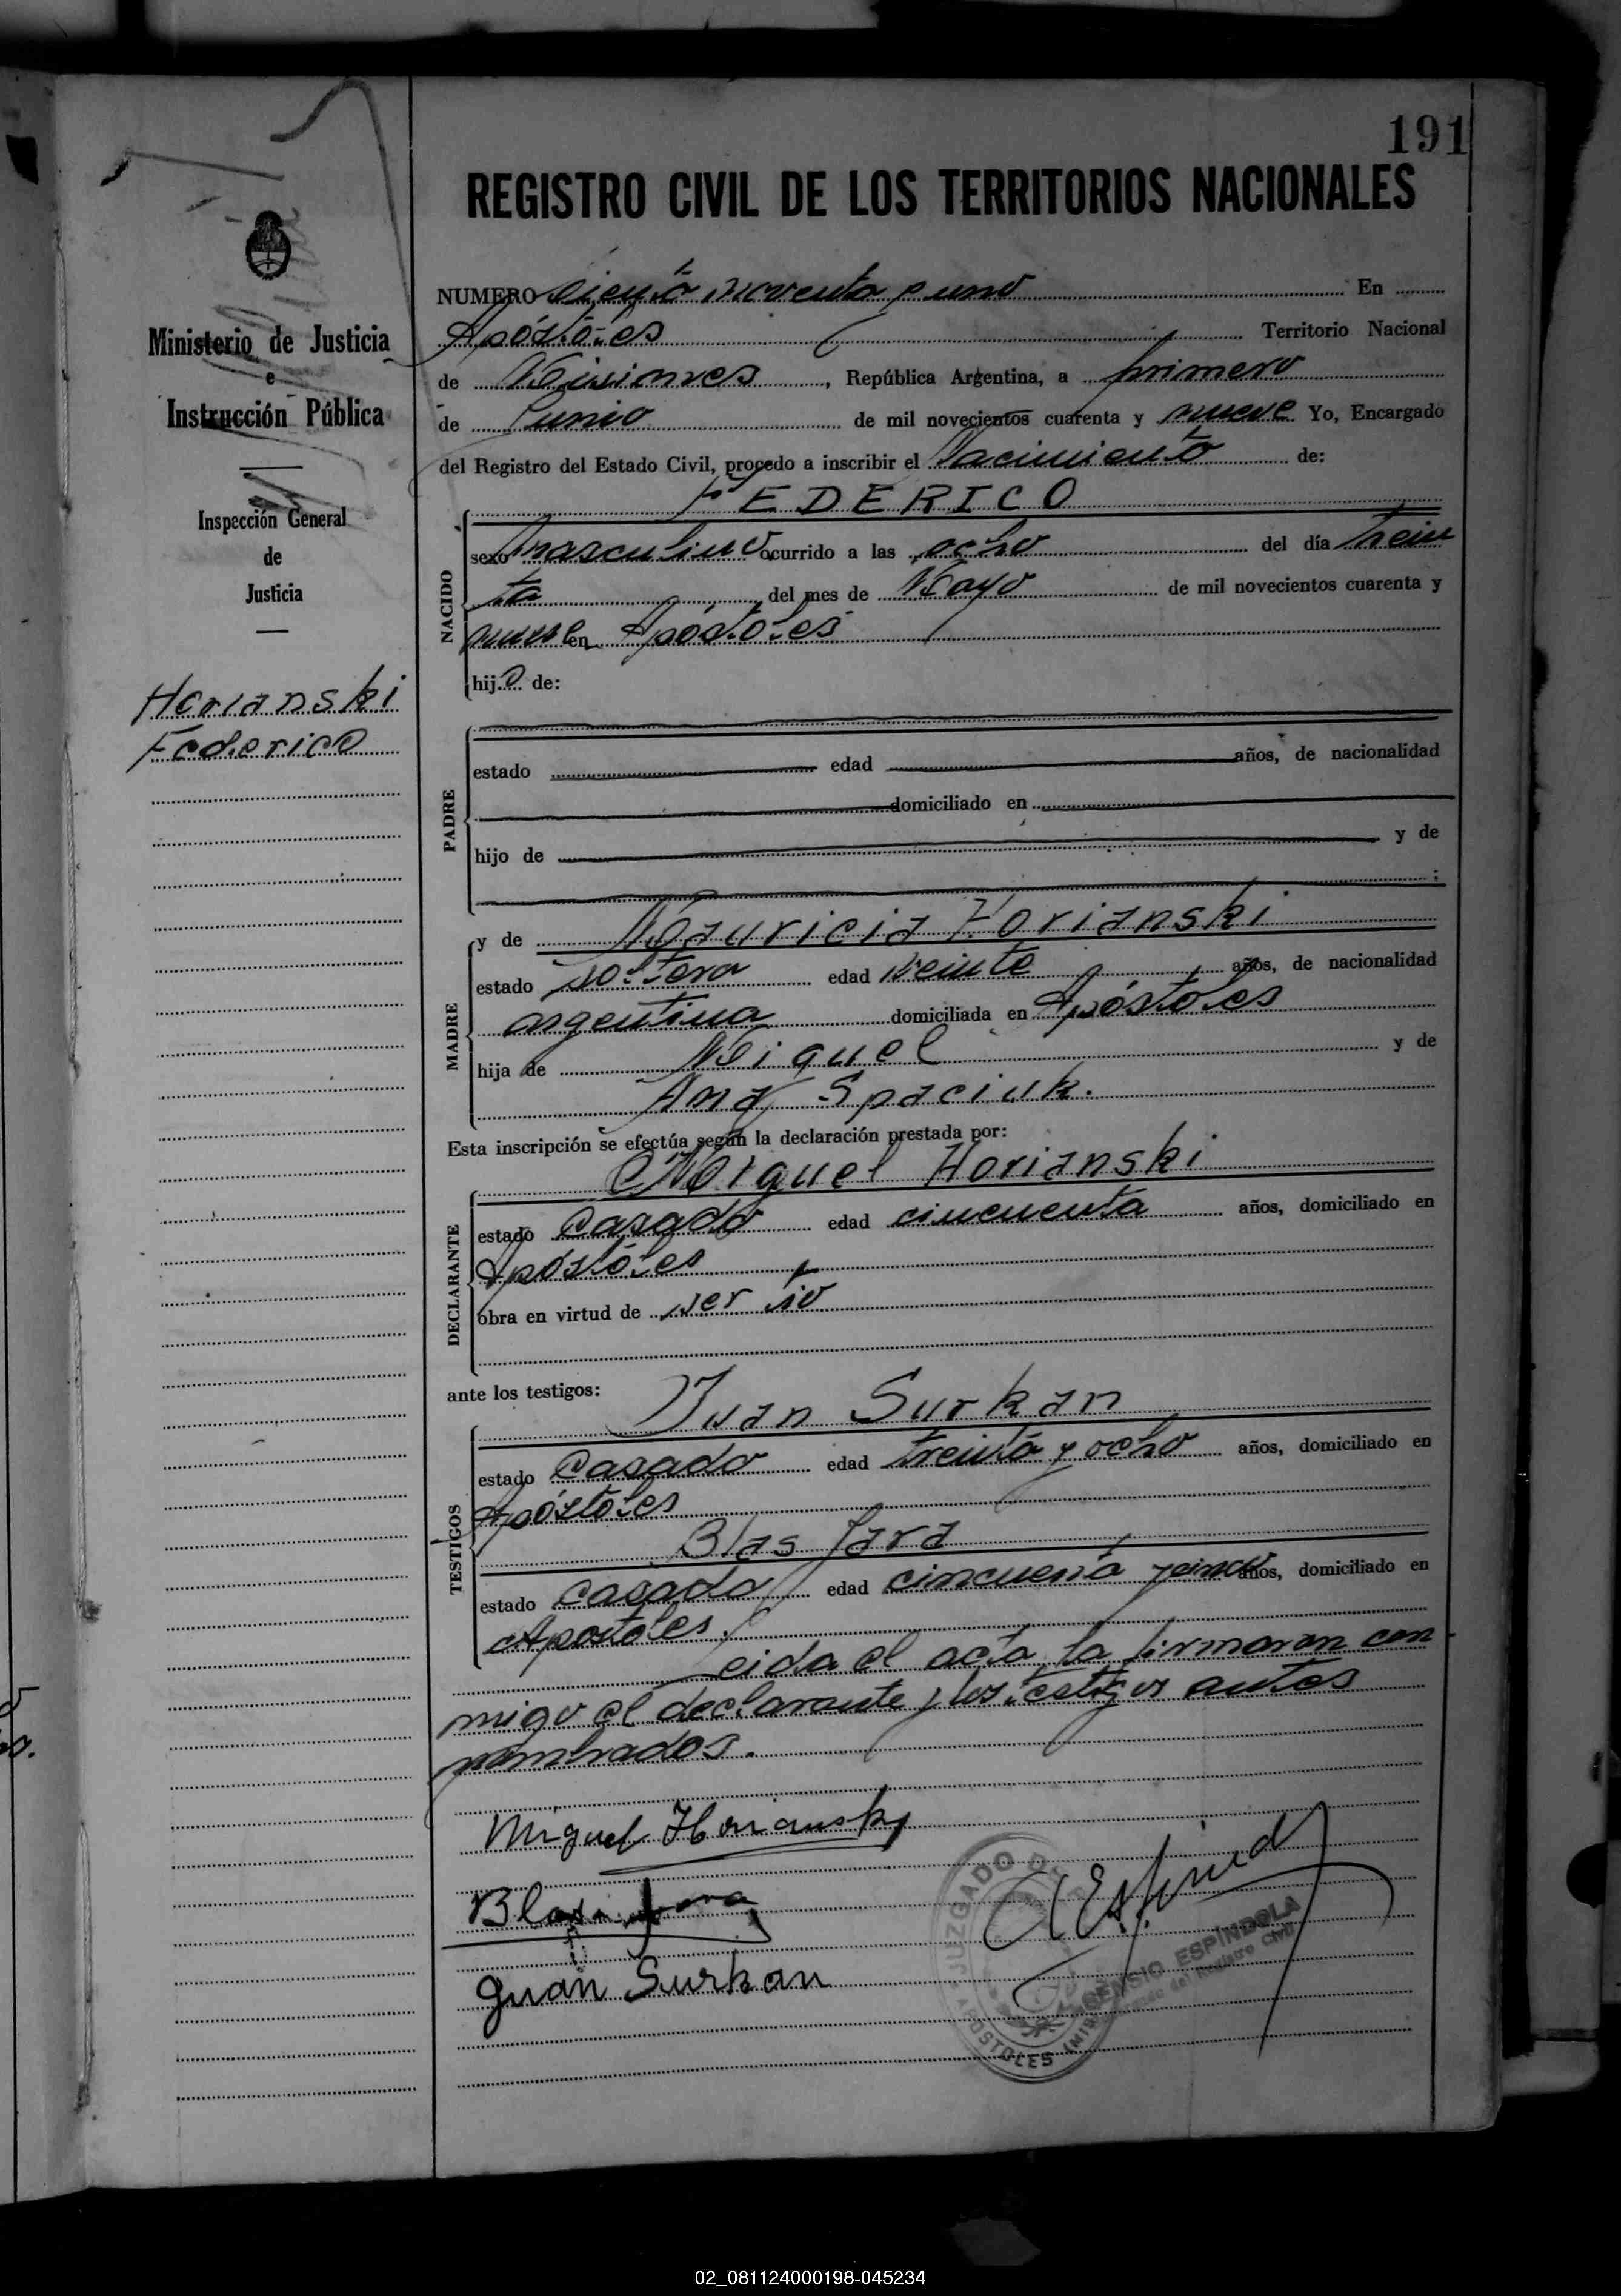 191
REGISTRO CIVIL DE LOS TERRITORIOS NACIONALES
NUMERO Ciento noventa y uno En
Apóstoles Territorio Nacional
de Misiones, República Argentina, a primero
de Junio de mil novecientos cuarenta y nueve Yo, Encargado
del Registro del Estado Civil, procedo a inscribir el Nacimiento de:
FEDERICO
NACIDO
sexo masculino ocurrido a las ocho del día trein
ta del mes de Mayo de mil novecientos cuarenta y
nueve en Apóstoles
hijo de:
PADRE
estado edad años, de nacionalidad
domiciliado en
hijo de y de
;
MADRE
y de Mauricia Horianski
estado soltera edad veinte años, de nacionalidad
argentina domiciliada en Apóstoles
hija de Miguel y de
Ana Spaciuk.
Esta inscripción se efectúa según la declaración prestada por:
Miguel Horianski
DECLARANTE
estado Casado edad cincuenta años, domiciliado en
Apóstoles
obra en virtud de ser tío
ante los testigos:
Juan Surkan
TESTIGOS
estado Casado edad treinta y ocho años, domiciliado en
Apóstoles
Blas Jara
estado casado edad cincuenta y cinco años, domiciliado en
Apostoles.
Leida el acta la firmaron con
migo el declarante y los testigos antes
nombrados.
Miguel Horiansky
Blas Jara
Juan Surkan
JUZGADO DE
APOSTOLES (MIS
ASENSIO ESPÍNDOLA
Encargado del Registro Civil
Ministerio de Justicia
e
Instrucción Pública
Inspección General
de
Justicia
Horianski
Federico
02_081124000198-045234